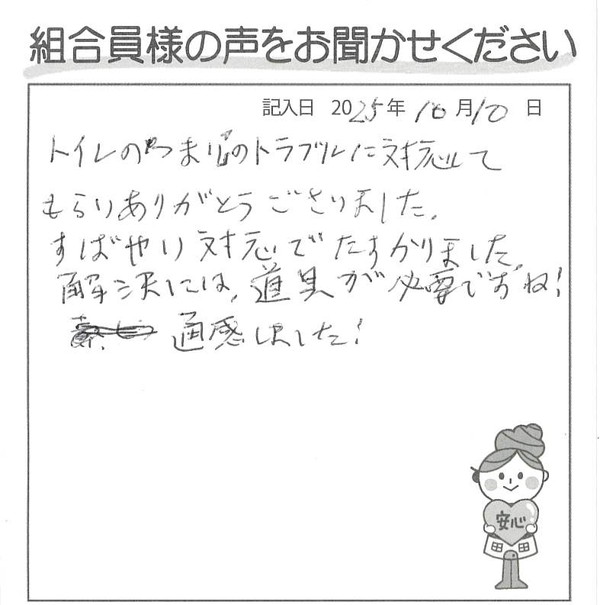 組合員様の声をお聞かせください
記入日 2025年 10月10日
トイレのつまりのトラブルに対応して
もらいありがとうございました。
すばやい対応でたすかりました。
解決には、道具が必要ですね!
通感しました!
安心